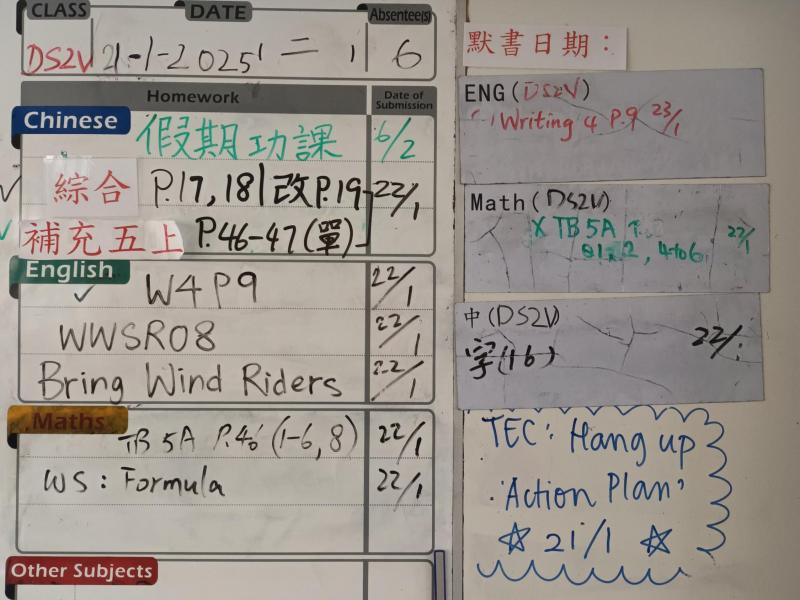 CLASS DATE Absentee(s)
DS2V 21-1-2025 二 6
Homework Date of Submission
Chinese 假期功課 6/2
綜合 P.17, 18 改P.19 22/1
補充五上 P.46-47(單)
English
W4P9 22/1
WWSR08 22/1
Bring Wind Riders 22/1
Maths
TB 5A P.46 (1-6, 8) 22/1
WS: Formula 22/1
Other Subjects
默書日期：
ENG (DS2V)
Writing 4 P.9 23/1
Math (DS2V)
X TB 5A 22/1
Q1, 2, 4 to 6
中 (DS2V)
字(16) 22/1
TEC: Hang up
'Action Plan'
☆ 21/1 ☆